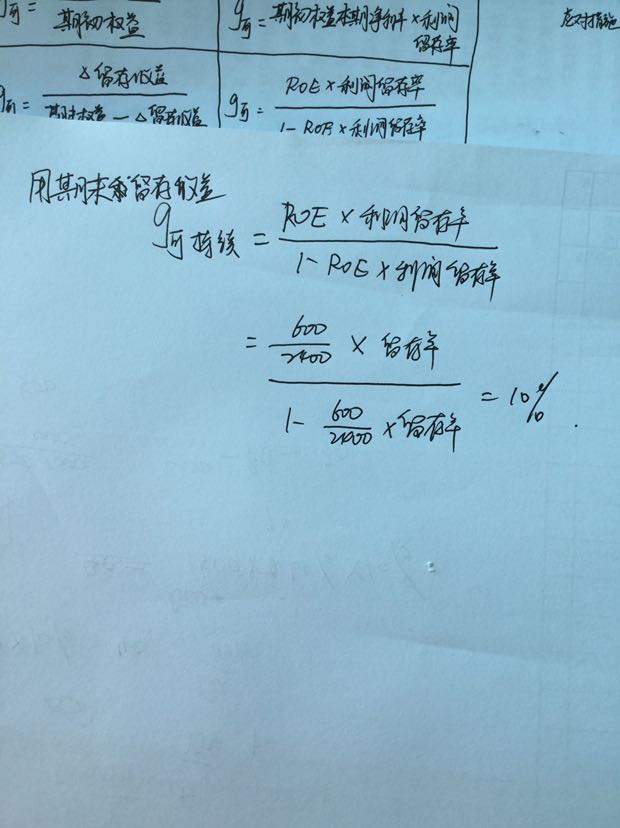 g可 =
期初权益
g可 = 期初权益本期净利率 × 利润
留存率
应对措施
g可 = △留存收益
期末权益 - △留存收益
g可 = ROE × 利润留存率
1 - ROE × 利润留存率
用期末和留存收益
g可持续 = ROE × 利润留存率
1 - ROE × 利润留存率
= 600
2400 × 留存率
1 - 600
2400 × 留存率 = 10%